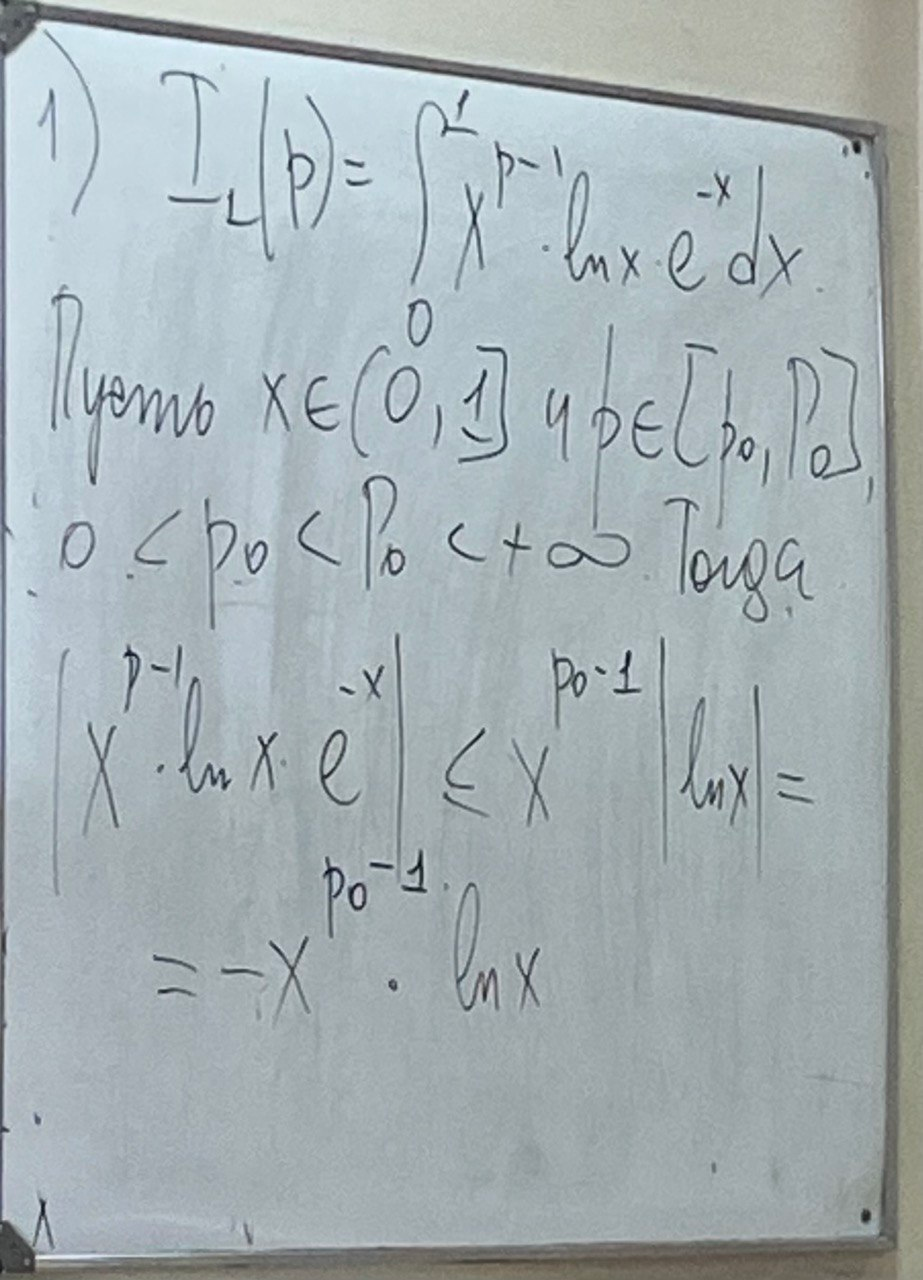 1) I₁(p) = ∫₀¹ xᵖ⁻¹ · ln x · e⁻ˣ dx.
Пусть x ∈ (0, 1] и p ∈ [p₀, P₀],
0 < p₀ < P₀ < +∞. Тогда
|xᵖ⁻¹ · ln x · e⁻ˣ| ≤ x^(p₀-1) |ln x| =
= -x^(p₀-1) · ln x